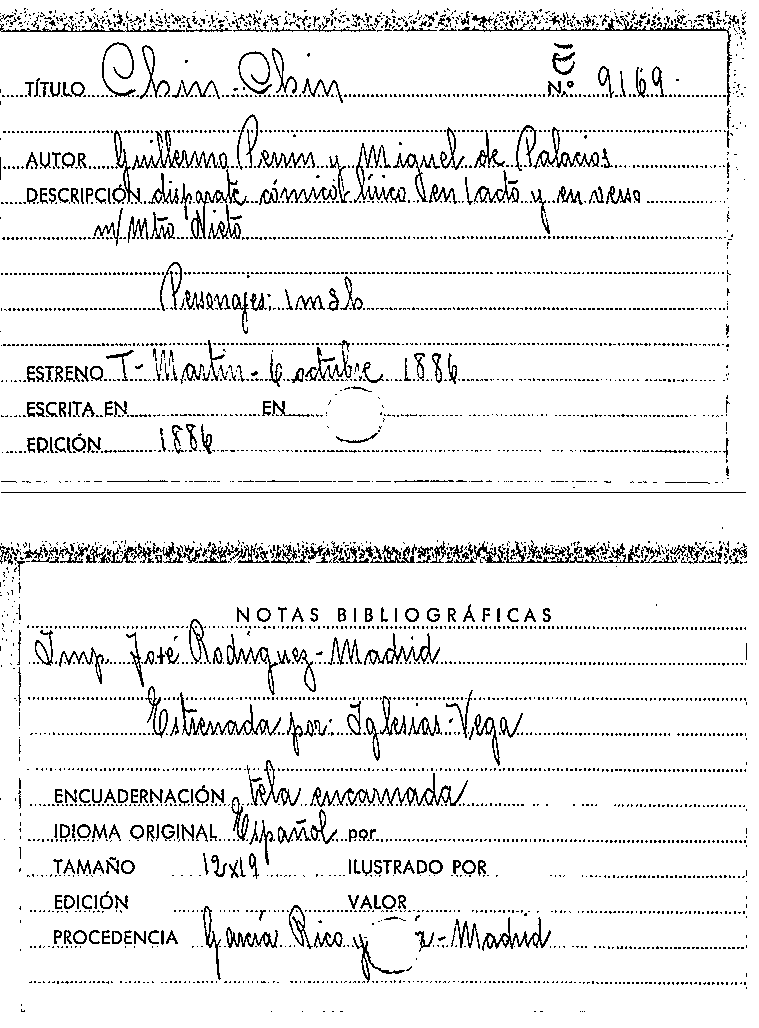 TÍTULO Chin-Chin N.º 9169.
AUTOR Guillermo Perrin y Miguel de Palacios
DESCRIPCIÓN disparate cómico lírico en 1 acto y en verso
m/ Mtro Nieto
Personajes: 1m 3h
ESTRENO T- Martin- 6 octubre 1886
ESCRITA EN EN
EDICIÓN 1886
NOTAS BIBLIOGRÁFICAS
Imp. José Rodríguez-Madrid
Estrenada por: Iglesias-Vega
ENCUADERNACIÓN tela encarnada
IDIOMA ORIGINAL Español por
TAMAÑO 12x19 ILUSTRADO POR
EDICIÓN VALOR
PROCEDENCIA García Rico y -Madrid